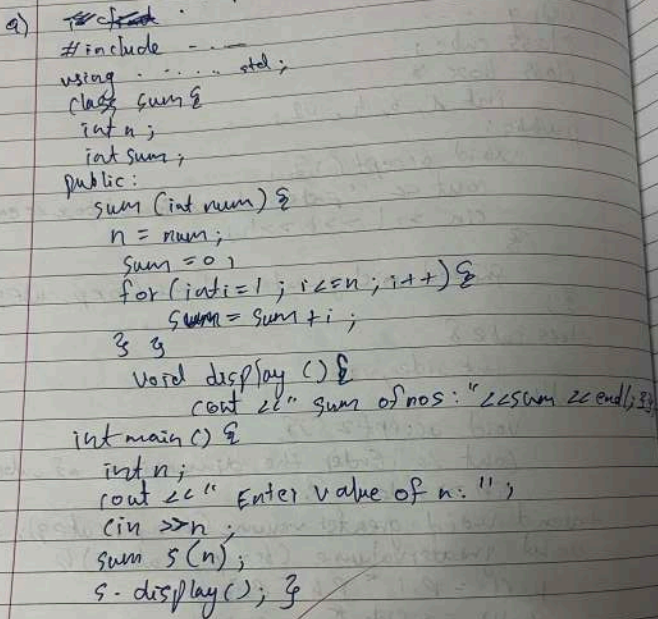 a)
#include - - -
using . . . . . . std;
class sum {
int n;
int sum;
public:
sum (int num) {
n = num;
sum = 0;
for (int i=1 ; i<=n ; i++) {
sum = sum + i ;
} }
void display () {
cout << " sum of nos: " << sum << endl; }}
int main () {
int n;
cout << " Enter value of n: " ;
cin >> n ;
sum s(n) ;
s. display(); }